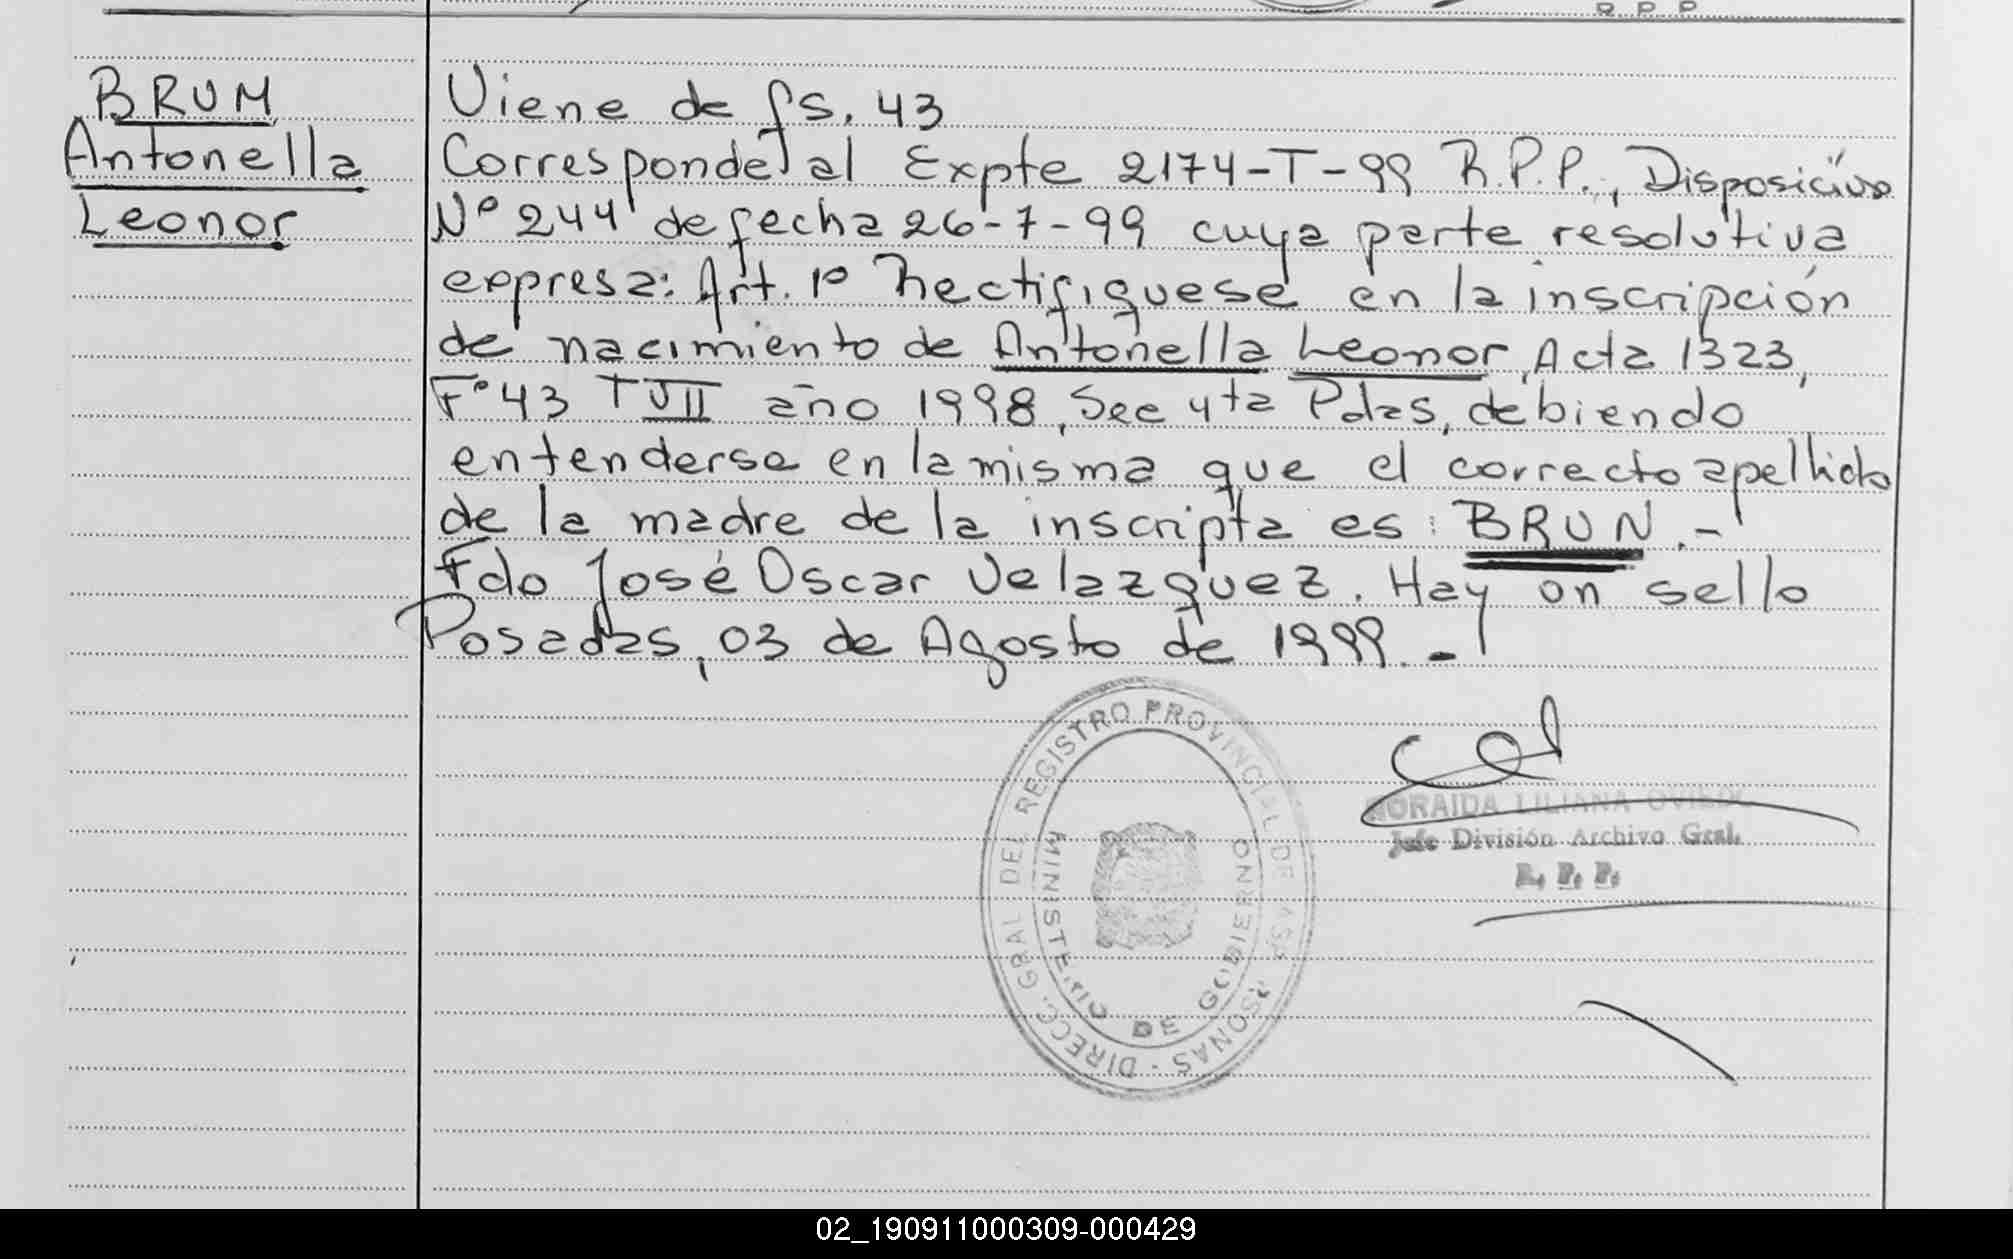 R. P. P.
BRUM
Antonella
Leonor
Viene de fs. 43
Corresponde al Expte 2174-T-99 R.P.P., Disposición
Nº 244 de fecha 26-7-99 cuya parte resolutiva
expresa: Art. 1º Rectifiquese en la inscripción
de nacimiento de Antonella Leonor, Acta 1323,
Fº 43 T VII año 1998, Sec 4ta Pdas, debiendo
entenderse en la misma que el correcto apellido
de la madre de la inscripta es: BRUN.-
Fdo José Oscar Velazquez. Hay un sello
Posadas, 03 de Agosto de 1999.-
DIRECC. GRAL DEL REGISTRO PROVINCIAL DE
MINISTERIO DE GOBIERNO
NORAIDA LILIANA OVIEDO
Jefe División Archivo Gral.
R. P. P.
02_190911000309-000429